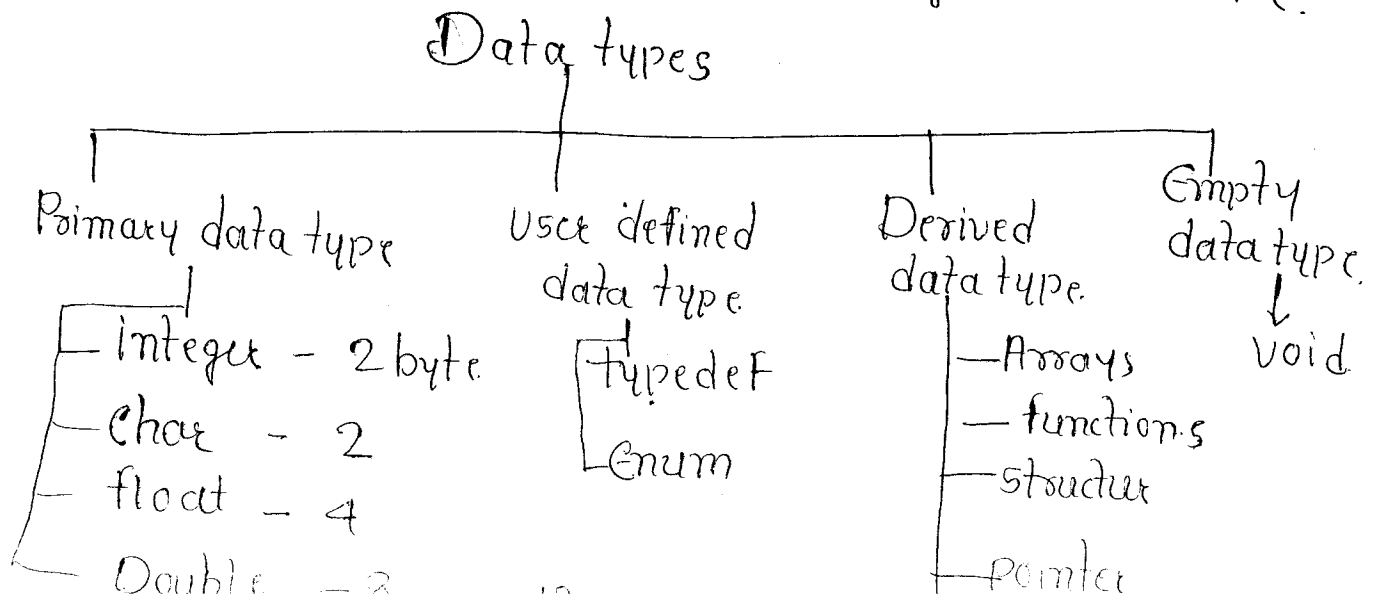 Data types
Primary data type
integer - 2 byte
Char - 2
float - 4
Double
User defined
data type
typedef
Enum
Derived
data type
Arrays
functions
structur
pointer
Empty
data type
void